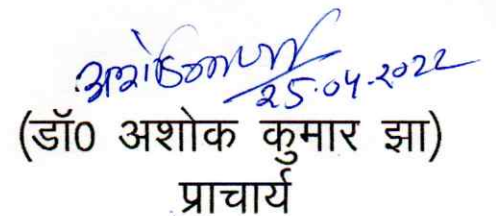 25.04.2022
(डॉ0 अशोक कुमार झा)
प्राचार्य